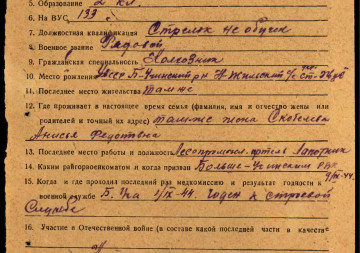 5. Образование 2 кл
6. На ВУС 133
7. Должностная квалификация Стрелок не обучен
8. Военное звание Рядовой
9. Гражданская специальность
10. Место рождения
11. Последнее место жительства Там же
12. Где проживает в настоящее время семья (фамилия, имя и отчество жены или
родителей и точный их адрес) там же жена
Анисья Федотовна
13. Последнее место работы и должность
14. Каким райгорвоенкоматом и когда призван Больше-Усинским РВК
15. Когда и где проходил последний раз медкомиссию и результат годности к
военной службе Б. Уса 1/IX-44. Годен к строевой
Службе
16. Участие в Отечественной войне (в составе какой последней части и в качестве